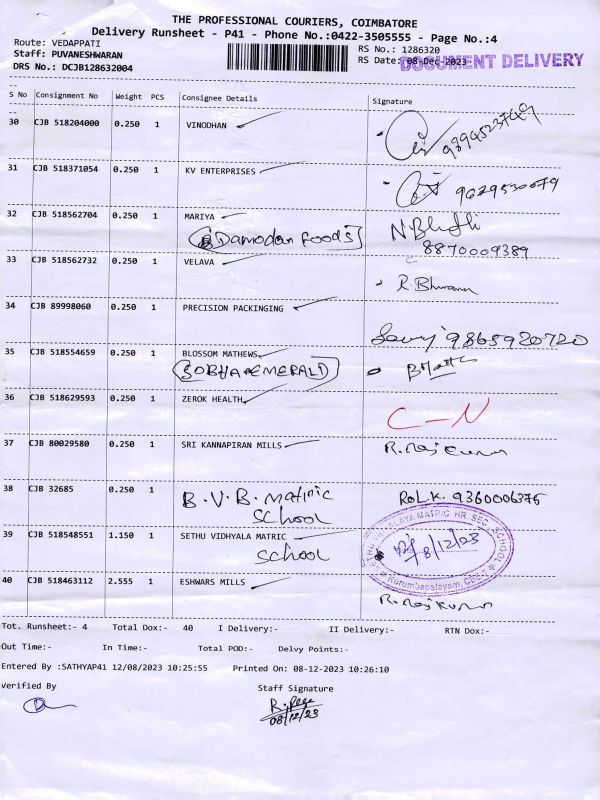 THE PROFESSIONAL COURIERS, COIMBATORE
Delivery Runsheet - P41 - Phone No.:0422-3505555 - Page No.:4
Route: VEDAPPATI
Staff: PUVANESHWARAN
DRS No.: DCJB128632004
RS No.: 1286320
RS Date: 08-Dec-2023
DOCUMENT DELIVERY
S No Consignment No Weight PCS Consignee Details Signature
30 CJB 518204000 0.250 1 VINODHAN
31 CJB 518371054 0.250 1 KV ENTERPRISES 9629530079
32 CJB 518562704 0.250 1 MARIYA
Damodan Foods 8870009389
33 CJB 518562732 0.250 1 VELAVA
34 CJB 89998060 0.250 1 PRECISION PACKINGING
9865920720
35 CJB 518554659 0.250 1 BLOSSOM MATHEWS
SOBHA EMERALD
36 CJB 518629593 0.250 1 ZEROK HEALTH
C-N
37 CJB 80029580 0.250 1 SRI KANNAPIRAN MILLS
R. Raj Kumar
38 CJB 32685 0.250 1 B.V.B. Matiric RoL.K. 9360006375
School
39 CJB 518548551 1.150 1 SETHU VIDHYALA MATRIC
School
VIDHYALAYA MATRIC HR. SEC. SCHOOL
8/12/23
Kurumbapalayam, CBE-7
40 CJB 518463112 2.555 1 ESHWARS MILLS
R. Raj Kumar
Tot. Runsheet:- 4 Total Dox:- 40 I Delivery:- II Delivery:- RTN Dox:-
Out Time:- In Time:- Total POD:- Delvy Points:-
Entered By :SATHYAP41 12/08/2023 10:25:55 Printed On: 08-12-2023 10:26:10
Verified By Staff Signature
08/12/23